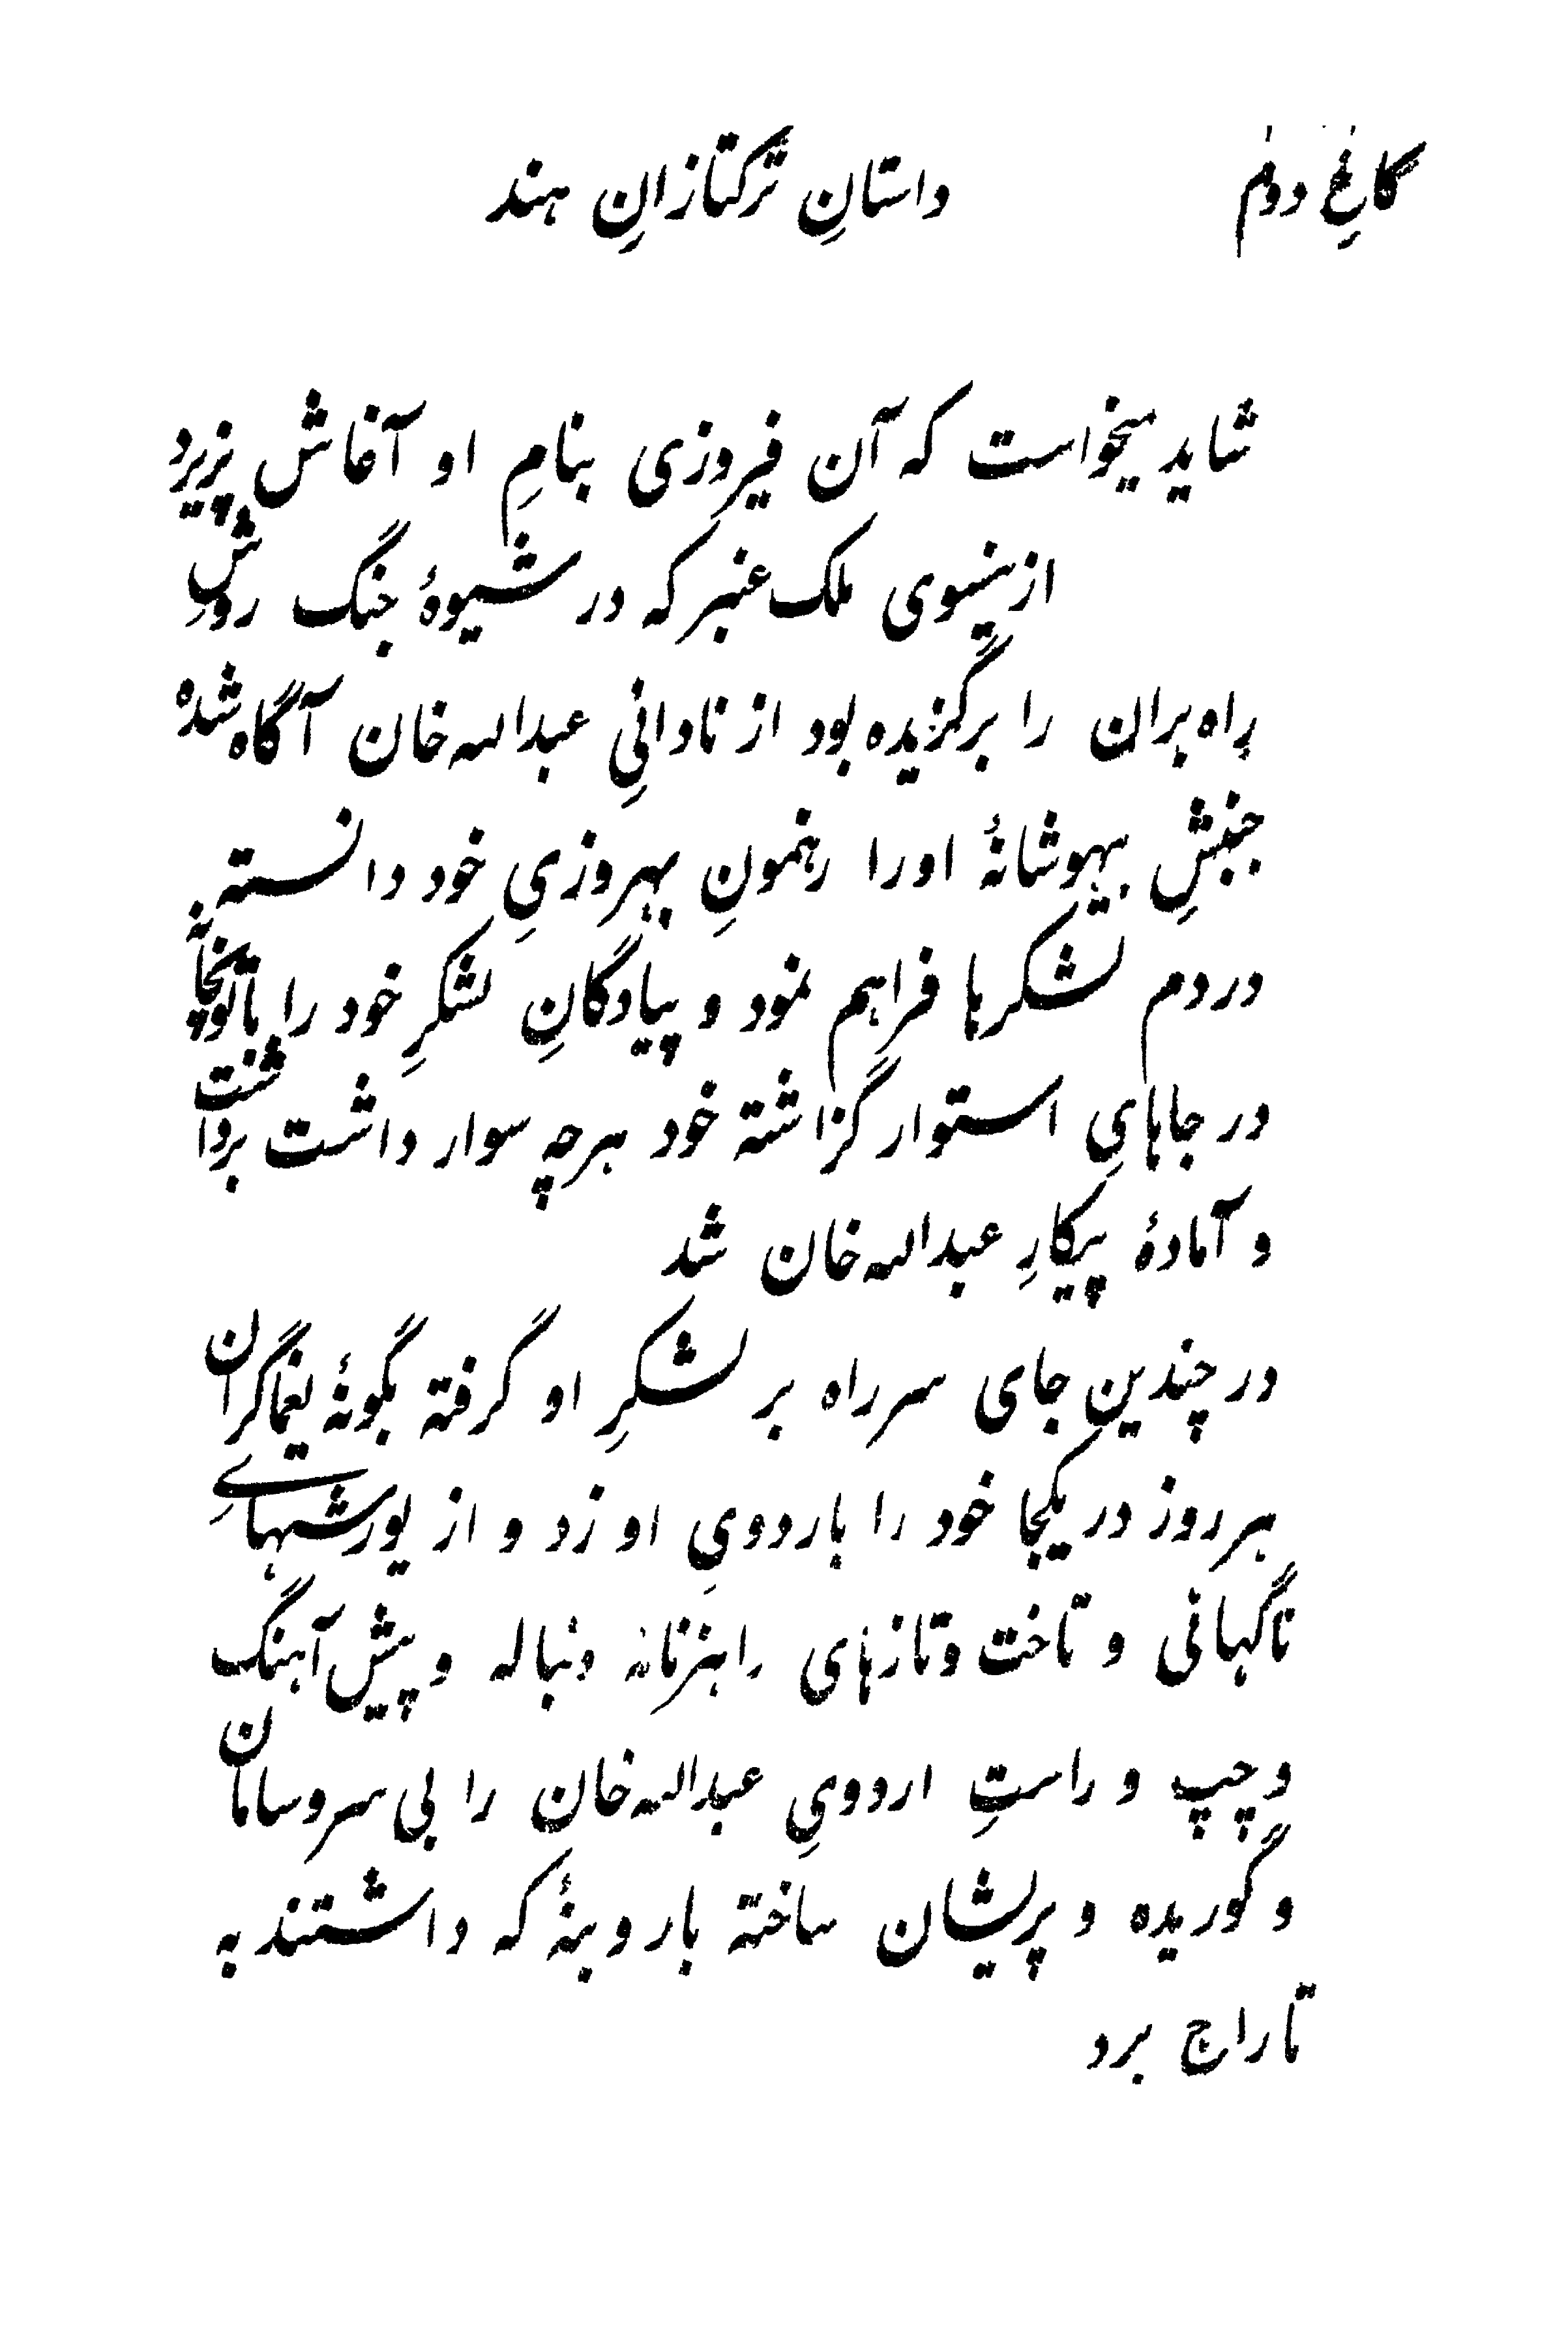 کاخِ دوم داستانِ ترکتازانِ هند
شاید میخواست که آن فیروزی بنامِ او آغاش پزیرد
ازینسوی ملک عنبر که در شیوهٔ جنگ روشِ
راه بران را برگزیده بود از نادانیِ عبدالله خان آگاه شده
جنبشِ بیهوشانهٔ اورا رهنمونِ بهروزیِ خود دانسته
دردم لشکرها فراهم نمود و پیادگانِ لشکرِ خود را باتوپخانه
در جاهایِ استوار گزاشته خود هرچه سوار داشت برداشت
و آمادهٔ پیکارِ عبدالله خان شد
در چندین جای سر راه بر لشکرِ او گرفته بگونهٔ یغماگران
هر روز در یکجا خود را باردویِ او زد و از یورشهایِ
ناگهانی و تاخت و تازهای راهزنانه دنباله و پیش آهنگ
و چپ و راستِ اردویِ عبدالله خان را بی سروسامان
و گوریده و پریشان ساخته بار و بنهٔ که داشتند به
تاراج برد